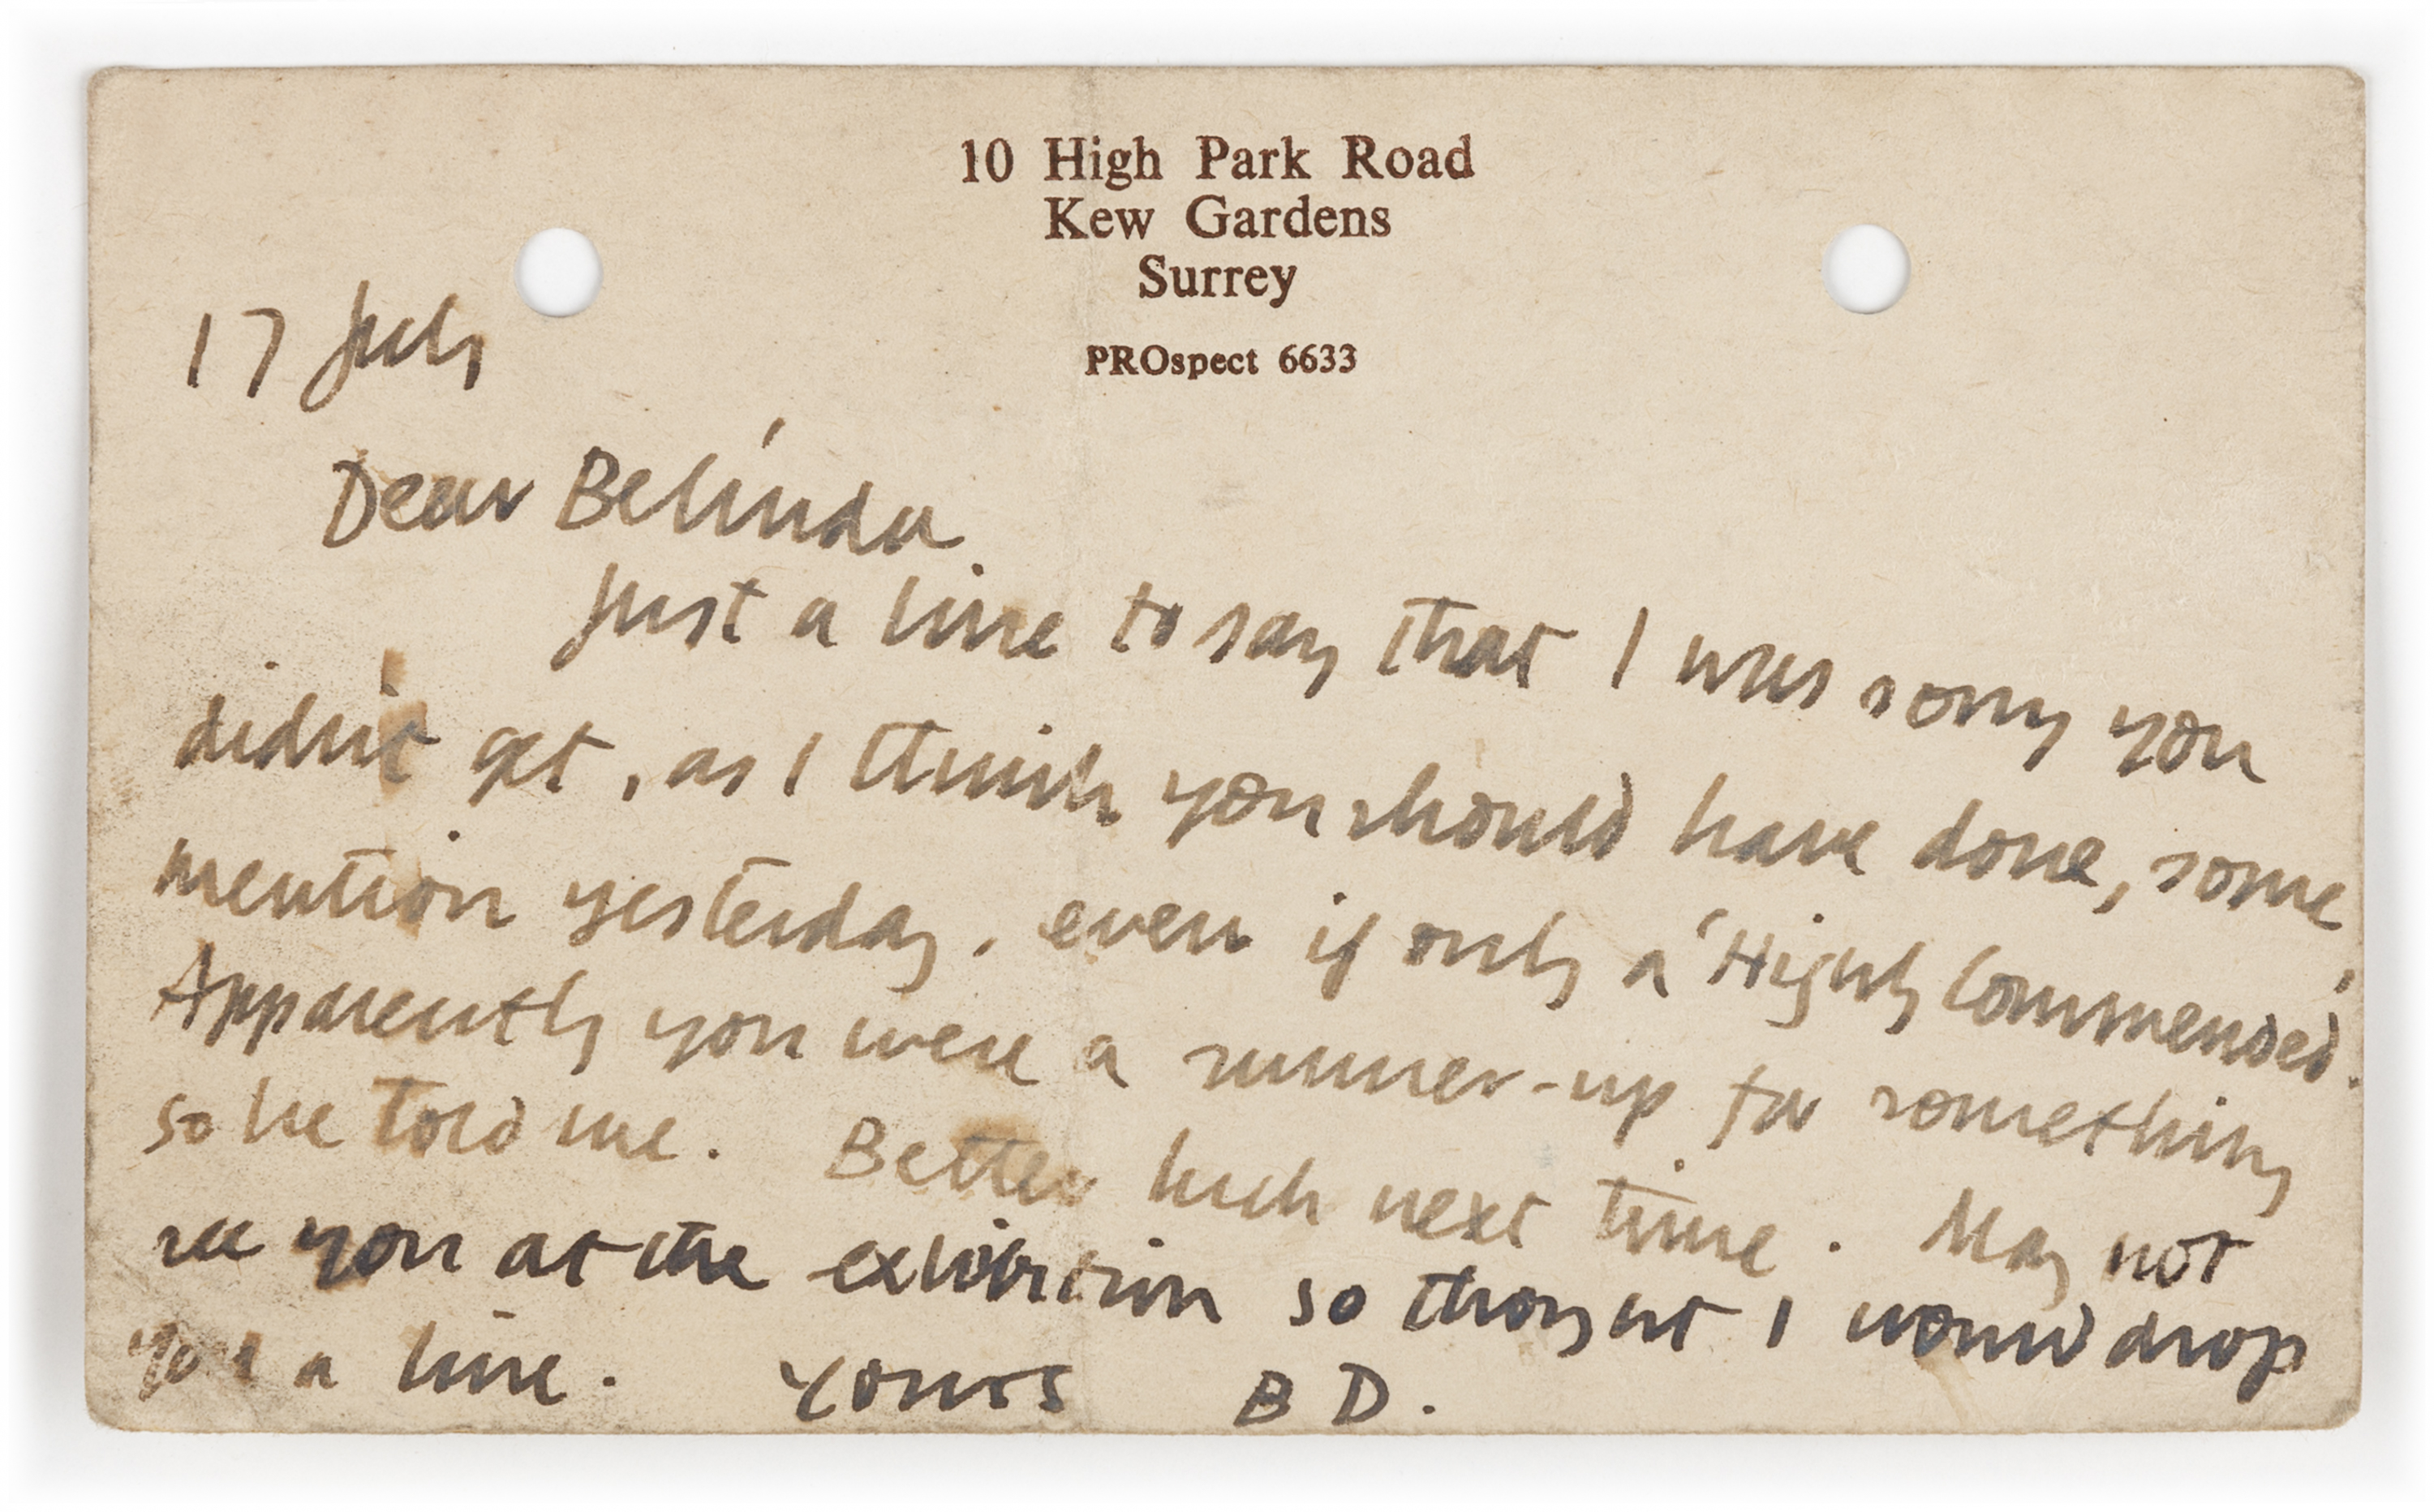 10 High Park Road
Kew Gardens
Surrey
PROspect 6633
17 July
Dear Belinda
Just a line to say that I was sorry you
didn't get, as I think you should have done, some
mention yesterday, even if only a 'Highly Commended'.
Apparently you were a runner-up for something
so he told me. Better luck next time. May not
see you at the exhibition so thought I would drop
you a line. Yours B D.